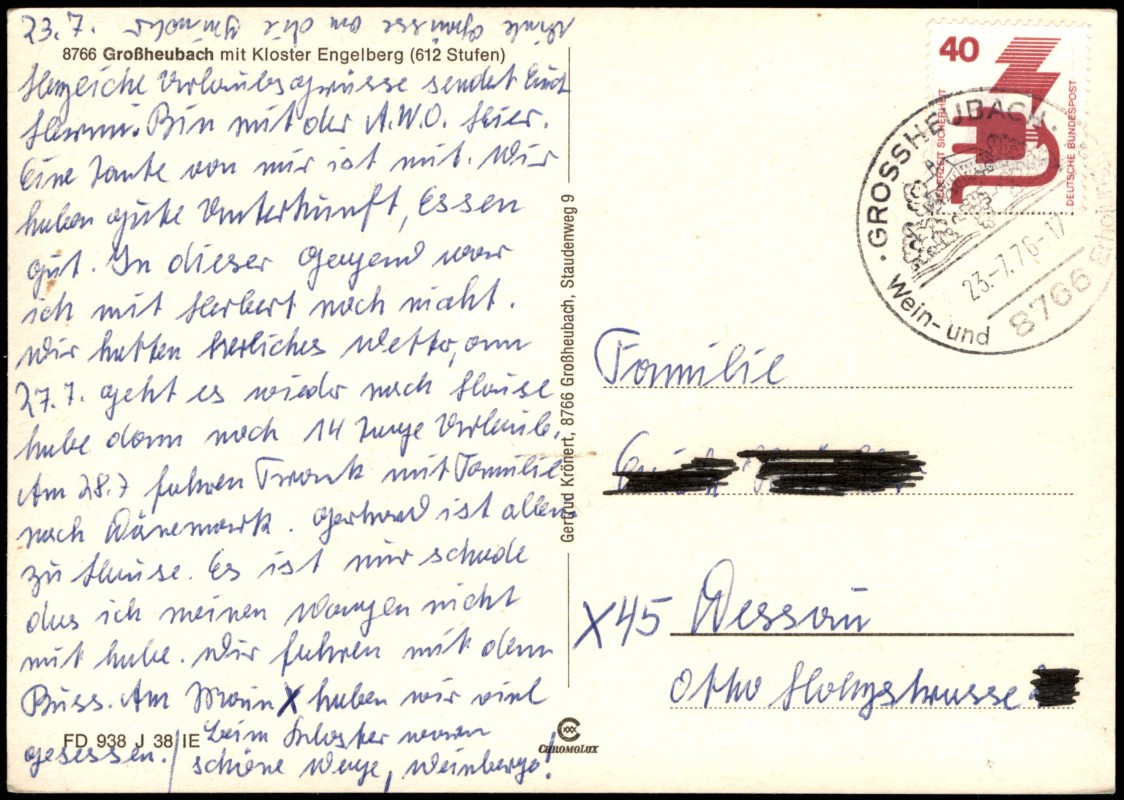 23.7.
viele Grüsse an die
8766 Großheubach mit Kloster Engelberg (612 Stufen)
Herzliche Urlaubsgrüsse sendet Euch
Bin mit der A.W.O. hier.
Eine Tante von mir ist mit. Wir
haben gute Unterkunft, Essen
gut. In dieser Gegend war
ich mit Herbert noch nicht.
Wir hatten herliches Wetter, am
27.7. geht es wieder nach Hause
habe dann noch 14 Tage Urlaub.
Am 28.7 fahren Frank mit Familie
nach Dänemark. Gerhard ist allein
zu Hause. Es ist nur schade
das ich meinen Wagen nicht
mit habe. Wir fahren mit dem
Buss. Am Main X haben wir viel
gesessen. / beim Kloster waren
schöne Wege, Weinberge!
FD 938 J 38 IE
CHROMOLUX
Gertrud Krönert, 8766 Großheubach, Staudenweg 9
40
JEDERZEIT SICHERHEIT
DEUTSCHE BUNDESPOST
· GROSSHEUBACH ·
Wein- und
23.-7.76-17
8766
Familie
X45 Dessau
Otto Holzstrasse